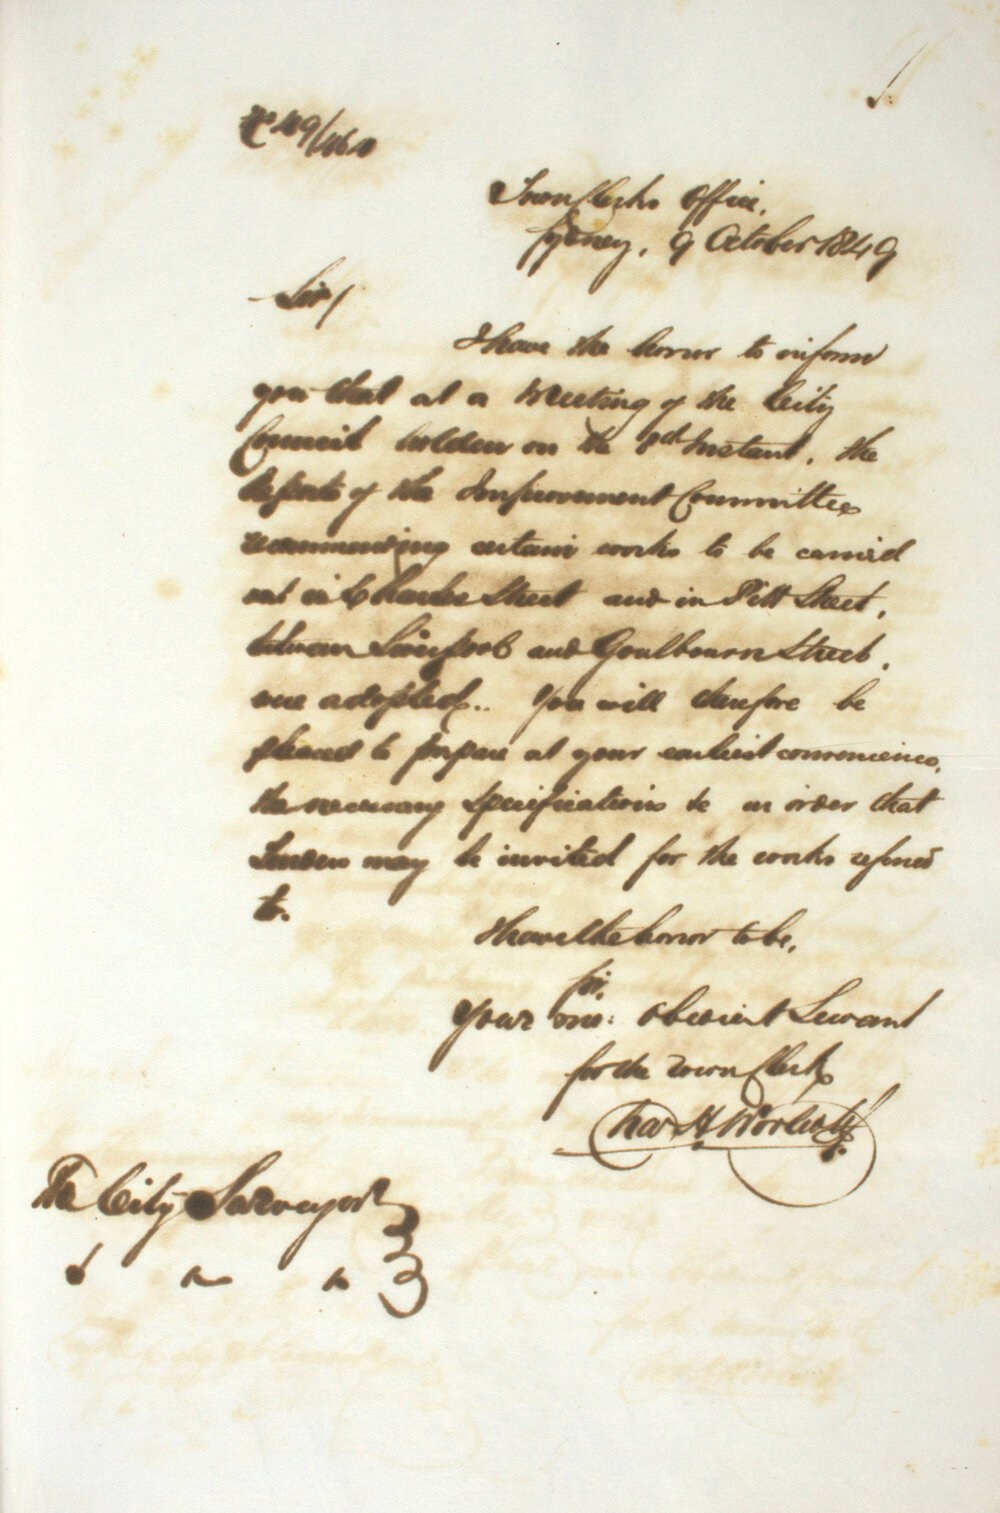 Town Clerks Office,
Sydney, 9 October 1849
Sir/
I have the honor to inform
you that at a Meeting of the City
Council holden on the Instant, the
Reports of the Improvement Committee
recommending certain works to be carried
out in Charles Street and in Pitt Street,
between Liverpool and Goulbourn Street,
were adopted.. You will therefore be
pleased to prepare at your earliest convenience,
the necessary specifications &c in order that
Tenders may be invited for the works referred
to.
I have the honor to be,
Sir,
Your mo: obedient Servant
for the Town Clerk
Chas H Woolcott
The City Surveyor